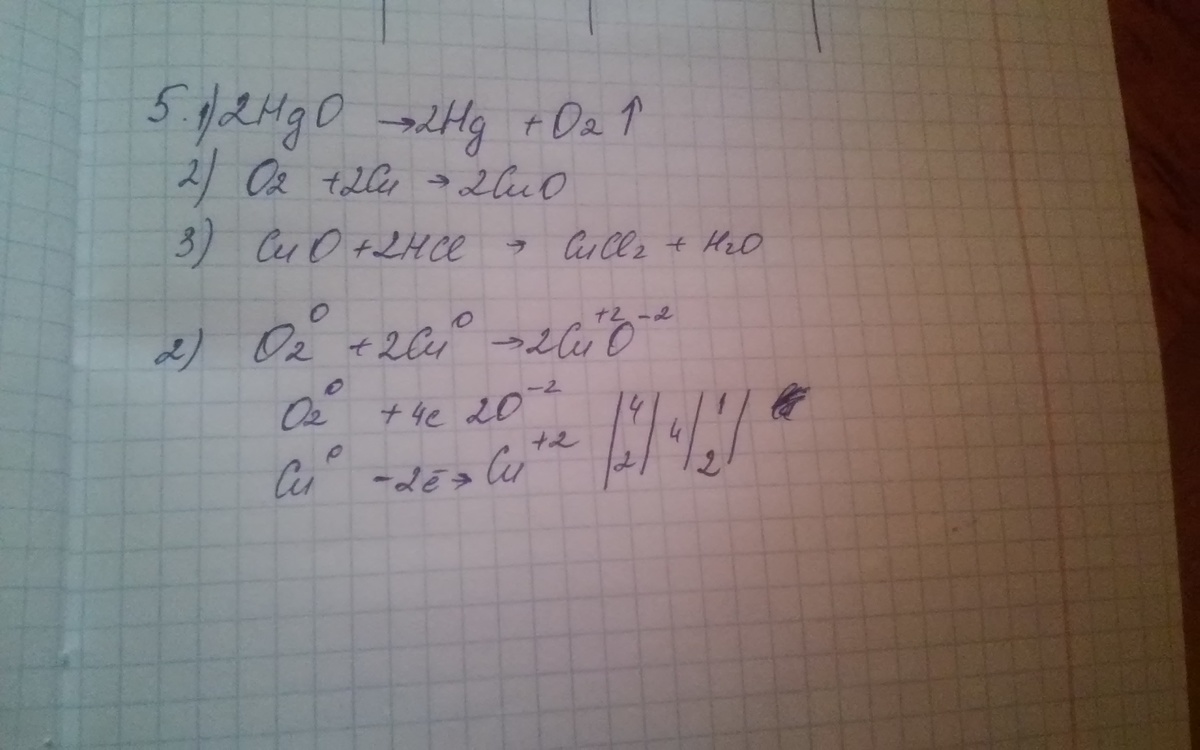 5. 1) 2HgO → 2Hg + O₂ ↑
2) O₂ + 2Cu → 2CuO
3) CuO + 2HCl → CuCl₂ + H₂O
2) O₂⁰ + 2Cu⁰ → 2Cu⁺²O⁻²
O₂⁰ + 4e 2O⁻² | 4 | 4 | 1 |
Cu⁰ - 2ē → Cu⁺² | 2 | | 2 |